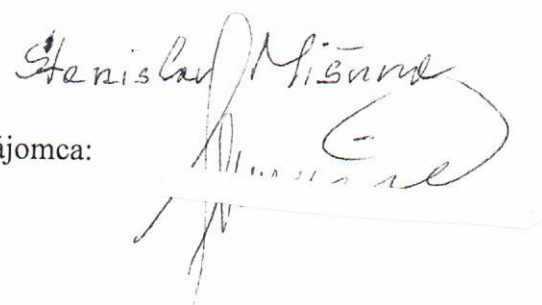 Stanislav Mišuna
ájomca: